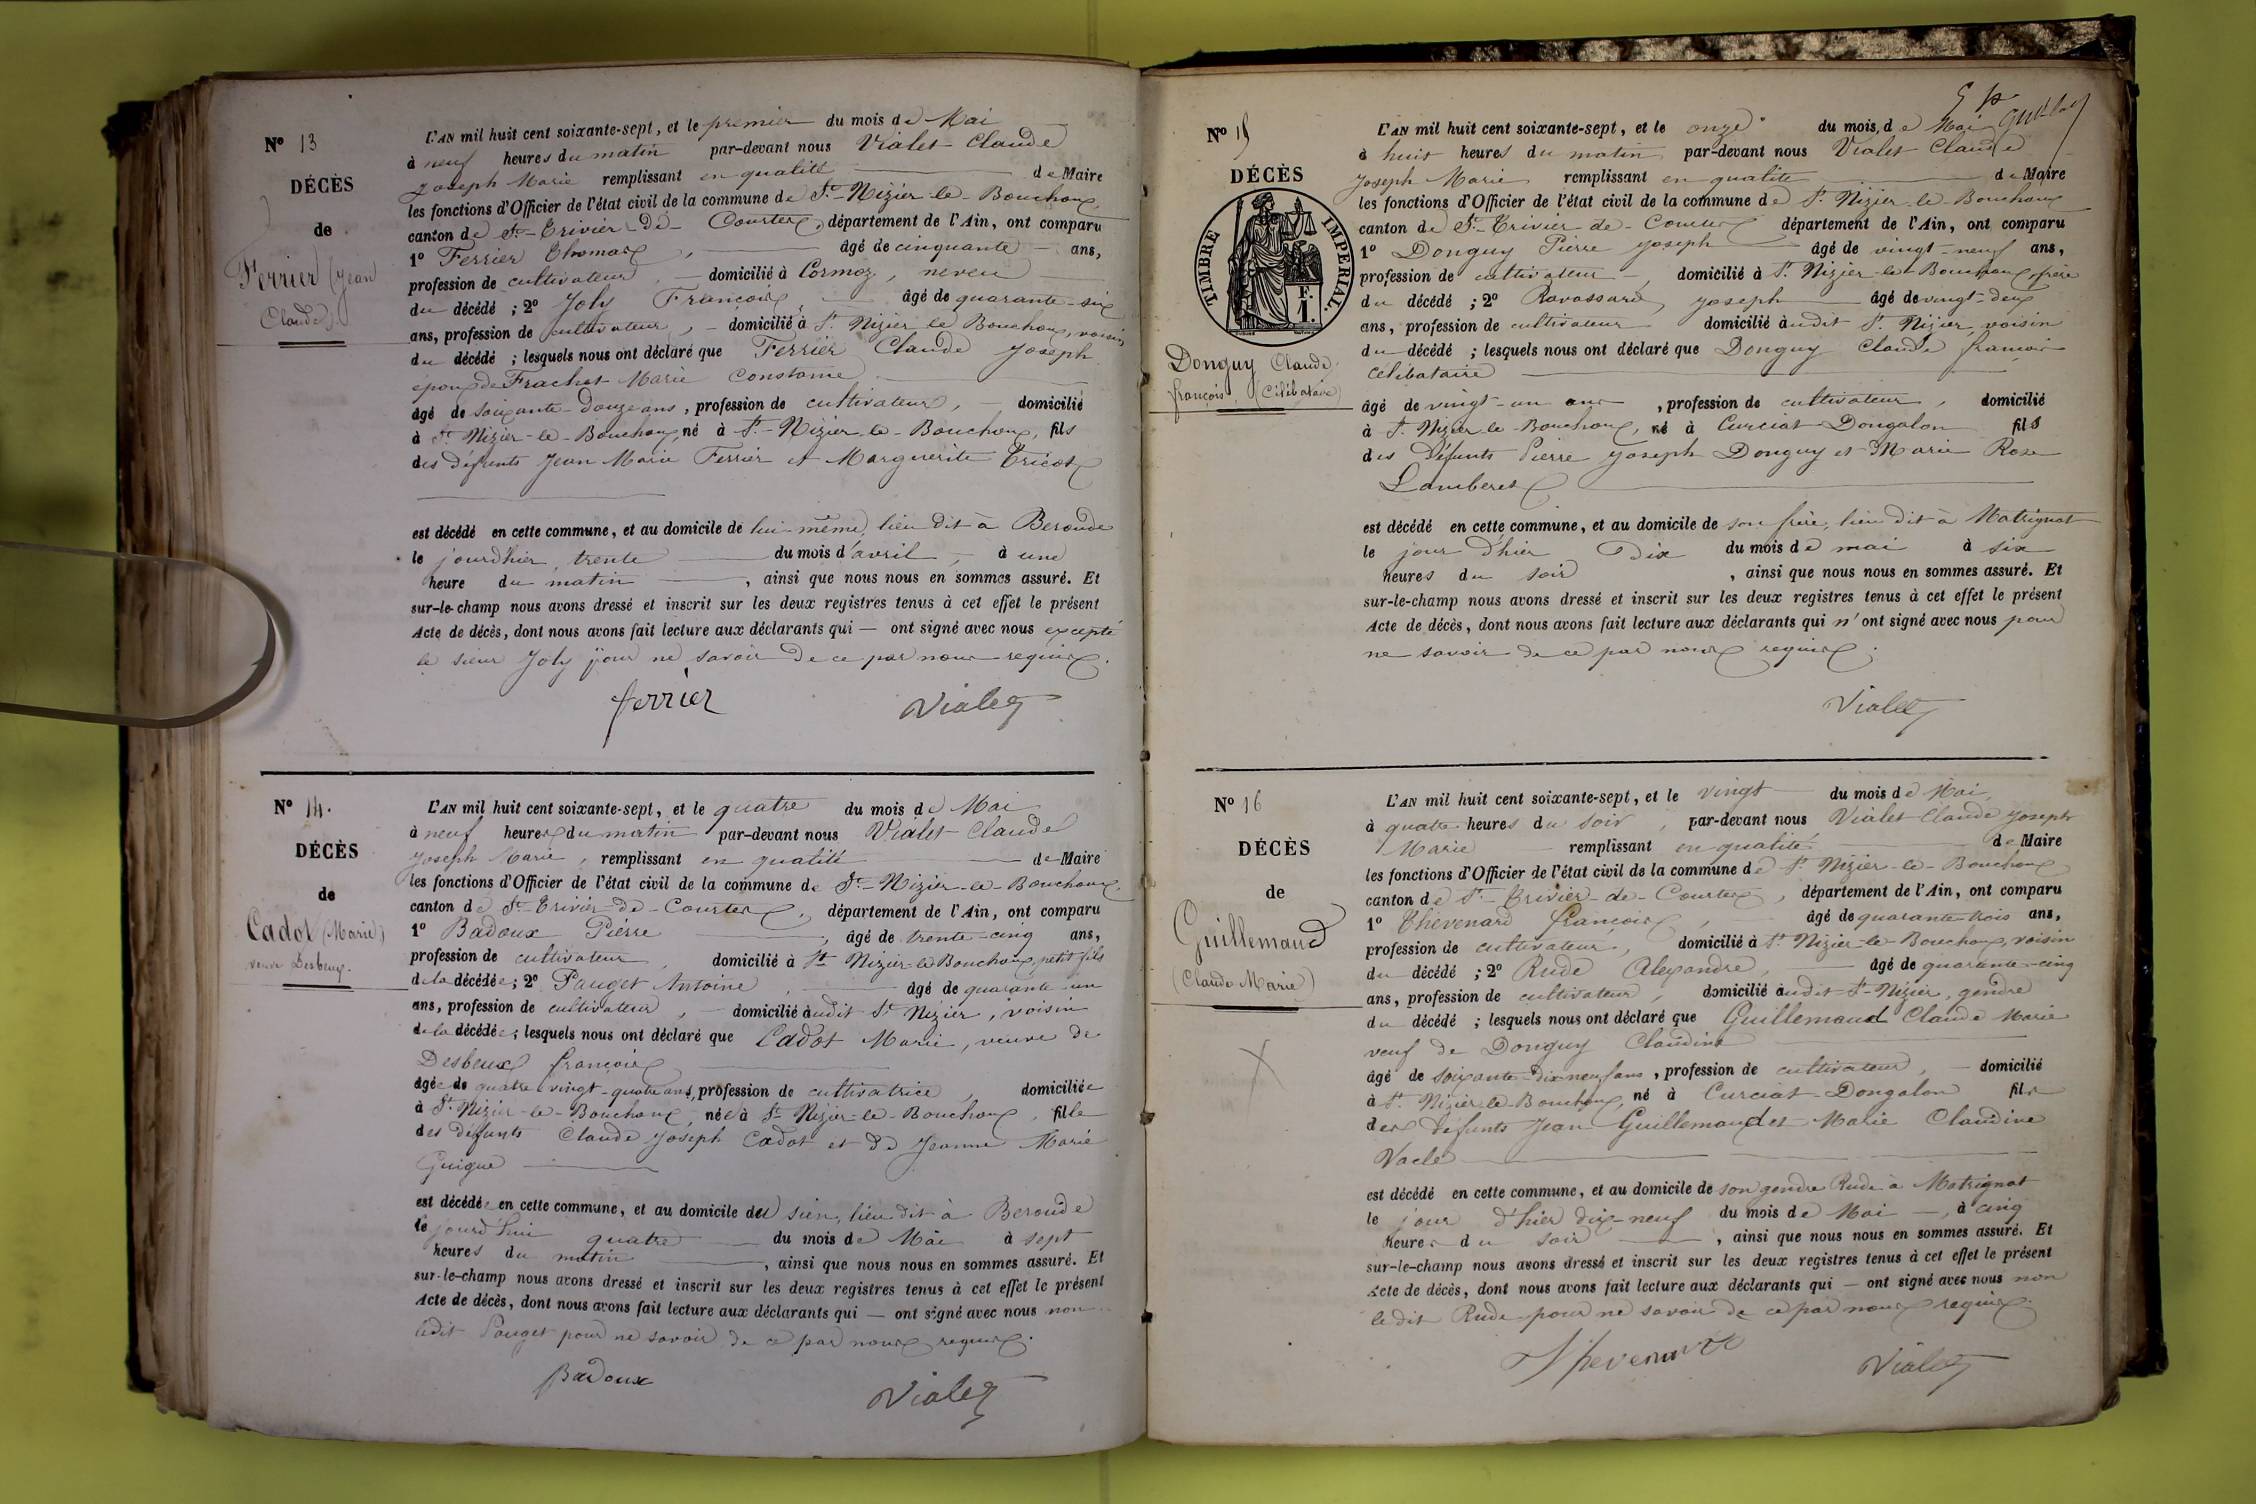 N° 13
DÉCÈS
de
Ferrier (Jean
Claude).
L'AN mil huit cent soixante-sept, et le premier du mois de Mai
à neuf heures du matin par-devant nous Vialet Claude
Joseph Marie remplissant en qualité de Maire
les fonctions d'Officier de l'état civil de la commune de St-Nizier-le-Bouchoux,
canton de St-Trivier-de-Courtes, département de l'Ain, ont comparu
1° Ferrier Thomas, âgé de cinquante ans,
profession de cultivateur domicilié à Cormoz, neveu
du décédé ; 2° Joly François, âgé de quarante-six
ans, profession de cultivateur, domicilié à St. Nizier le Bouchoux, voisin
du décédé ; lesquels nous ont déclaré que Ferrier Claude Joseph
époux de Frachet Marie Constance
âgé de soixante-douze ans, profession de cultivateur, domicilié
à St Nizier-le-Bouchoux, né à St-Nizier-le-Bouchoux, fils
des défunts Jean Marie Ferrier et Marguerite Tricot
est décédé en cette commune, et au domicile de lui-même, lieu dit à Beroude
le jourdhier, trente du mois d'avril, à une
heure du matin, ainsi que nous nous en sommes assuré. Et
sur-le-champ nous avons dressé et inscrit sur les deux registres tenus à cet effet le présent
Acte de décès, dont nous avons fait lecture aux déclarants qui — ont signé avec nous excepté
le sieur Joly pour ne savoir de ce par nous requis.
ferrier Vialet
N° 14.
DÉCÈS
de
Cadot (Marie)
veuve Desbeux.
L'AN mil huit cent soixante-sept, et le quatre du mois de Mai
à neuf heures du matin par-devant nous Vialet Claude
Joseph Marie, remplissant en qualité de Maire
les fonctions d'Officier de l'état civil de la commune de St-Nizier-le-Bouchoux,
canton de St-Trivier-de-Courtes, département de l'Ain, ont comparu
1° Badoux Pierre, âgé de trente-cinq ans,
profession de cultivateur, domicilié à St Nizier-le-Bouchoux, petit fils
de la décédée ; 2° Pauget Antoine, âgé de quarante-un
ans, profession de cultivateur, domicilié audit St Nizier, voisin
de la décédée ; lesquels nous ont déclaré que Cadot Marie, veuve de
Desbeux françois
âgée de quatre vingt-quatre ans, profession de cultivatrice, domiciliée
à St. Nizier-le-Bouchoux, née à St-Nizier-le-Bouchoux, fille
des défunts Claude Joseph Cadot et de Jeanne Marie
Guigue
est décédée en cette commune, et au domicile du sien, lieu dit à Beroude
le jourd'hui quatre du mois de Mai à sept
heures du matin, ainsi que nous nous en sommes assuré. Et
sur-le-champ nous avons dressé et inscrit sur les deux registres tenus à cet effet le présent
Acte de décès, dont nous avons fait lecture aux déclarants qui — ont signé avec nous non
ledit Pauget pour ne savoir de ce par nous requis.
Badoux Vialet
N° 15
DÉCÈS
TIMBRE IMPERIAL.
F.
1.
Donguy Claude
françois (Célibataire)
L'AN mil huit cent soixante-sept, et le onze du mois de Mai
à huit heures du matin par-devant nous Vialet Claude
Joseph Marie remplissant en qualité de Maire
les fonctions d'Officier de l'état civil de la commune de St. Nizier-le-Bouchoux
canton de St-Trivier-de-Courtes département de l'Ain, ont comparu
1° Donguy Pierre Joseph âgé de vingt-neuf ans,
profession de cultivateur, domicilié à St. Nizier-le-Bouchoux, frère
du décédé ; 2° Ravassard, Joseph âgé de vingt-deux
ans, profession de cultivateur domicilié audit St. Nizier, voisin
du décédé ; lesquels nous ont déclaré que Donguy Claude françois
célibataire
âgé de vingt-un ans, profession de cultivateur, domicilié
à St. Nizier-le-Bouchoux, né à Curciat-Dongalon fils
des défunts Pierre Joseph Donguy et Marie Rose
Lamberet
est décédé en cette commune, et au domicile de son frère, lieu dit à Matrignat
le jour d'hier Dix du mois de mai à six
heures du soir, ainsi que nous nous en sommes assuré. Et
sur-le-champ nous avons dressé et inscrit sur les deux registres tenus à cet effet le présent
Acte de décès, dont nous avons fait lecture aux déclarants qui n'ont signé avec nous pour
ne savoir de ce par nous requis.
Vialet
N° 16
DÉCÈS
de
Guillemaud
(Claude Marie)
L'AN mil huit cent soixante-sept, et le vingt du mois de Mai,
à quatre heures du soir, par-devant nous Vialet Claude Joseph
Marie remplissant en qualité de Maire
les fonctions d'Officier de l'état civil de la commune de St. Nizier-le-Bouchoux
canton de St-Trivier-de-Courtes, département de l'Ain, ont comparu
1° Thévenard françois, âgé de quarante-trois ans,
profession de cultivateur, domicilié à St. Nizier-le-Bouchoux, voisin
du décédé ; 2° Rude Alexandre, âgé de quarante-cinq
ans, profession de cultivateur, domicilié audit St-Nizier, gendre
du décédé ; lesquels nous ont déclaré que Guillemaud Claude Marie
veuf de Donguy Claudine
âgé de soixante-dix-neuf ans, profession de cultivateur, domicilié
à St. Nizier-le-Bouchoux, né à Curciat-Dongalon fils
des défunts Jean Guillemaud et Marie Claudine
Vacle
est décédé en cette commune, et au domicile de son gendre Rude à Matrignat
le jour d'hier dix-neuf du mois de Mai, à cinq
heures du soir, ainsi que nous nous en sommes assuré. Et
sur-le-champ nous avons dressé et inscrit sur les deux registres tenus à cet effet le présent
Acte de décès, dont nous avons fait lecture aux déclarants qui — ont signé avec nous non
ledit Rude pour ne savoir de ce par nous requis.
Thevenard Vialet